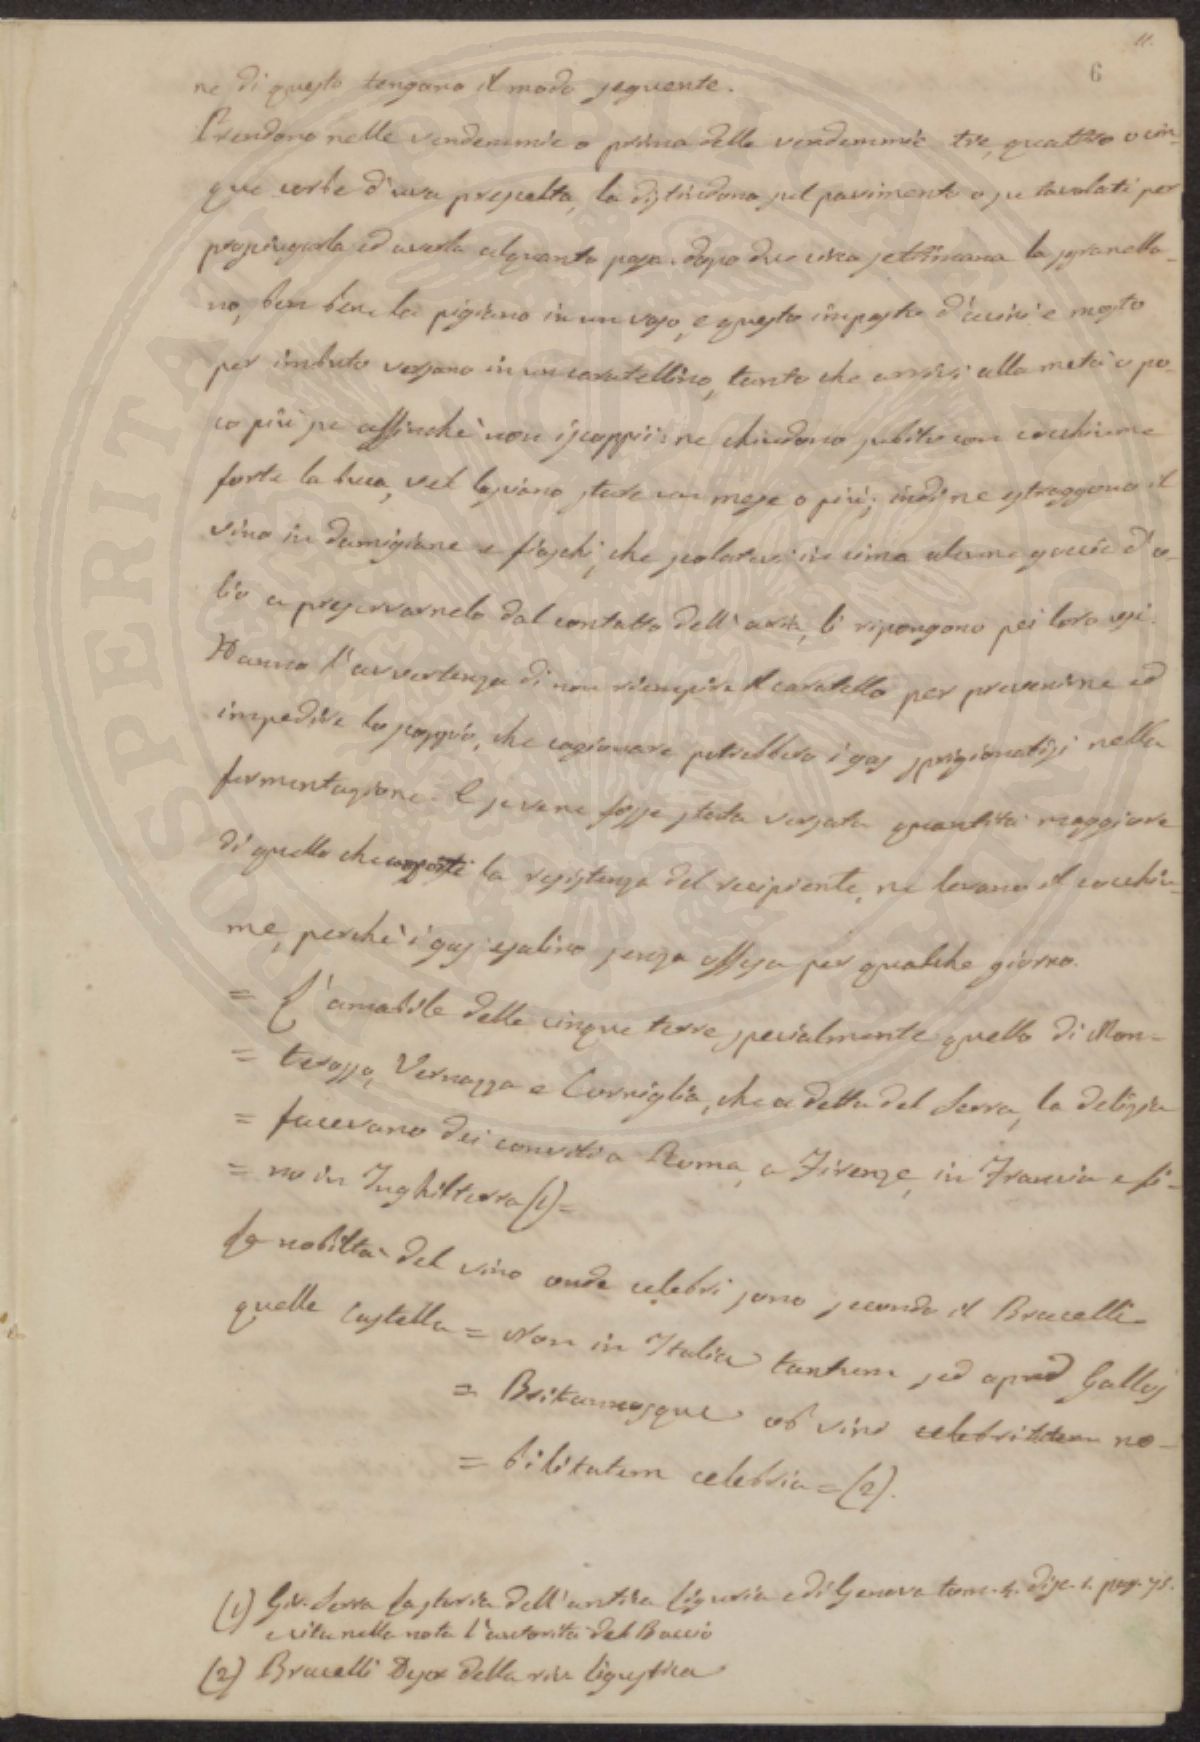 11.
6
ne di questo tengano il modo seguente.
Prendono nelle vendemmie o prima delle vendemmie tre, quattro o cin-
que corbe d'uva prescelta, la distendono sul pavimento o su tavolati per
prosciugarla ed averla alquanto passa. dopo due circa settimane la sgranella-
no, ben bene la pigiano in un vaso, e questo impasto d'acini e mosto
per imbuto versano in un caratellino, tanto che arrivi alla metà o po-
co più, se affinchè non iscoppii: ne chiudono subito con cocchiume
forte la buca, vel lasciano stare un mese o più; indi ne estraggono il
vino in damigiane e fiaschi, che scolatavi in cima alcune goccie d'o-
lio a preservarnelo dal contatto dell'aria, li ripongono pei loro usi.
Hanno l'avvertenza di non riempire il caratello per prevenire ed
impedire lo scoppio, che cagionare potrebbero i gas sprigionatisi nella
fermentazione. E se vene fosse stata versata quantità maggiore
di quello che comporti la resistenza del recipiente, ne levano il cocchiu-
me, perchè i gas esalino senza offesa per qualche giorno.
= L'amabile delle cinque terre specialmente quello di Mon-
= terosso, Vernazza e Corniglia, che a detta del Serra, la delizia
= facevano dei conviti a Roma, a Firenze, in Francia e fi-
= no in Inghilterra (1) =
La nobiltà del vino onde celebri sono secondo il Bracelli
quelle Castella = Non in Italia tantum sed apud Gallos
= Britannosque ob vini celebritatem no-
= bilitatem celebria = (2).
(1) Gir. Serra La storia dell'antica Liguria e di Genova tom. 4. disc. 1. pag. 75.
e cita nella nota l'autorità del Baccio
(2) Bracelli Descr della riva ligustica